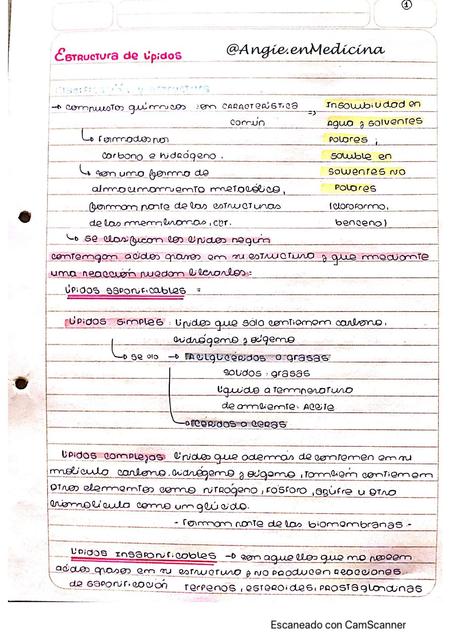 1
Estructura de lípidos @Angie.enMedicina
Clasificación y estructura
→ compuestos químicos con característica => Insolubilidad en
común agua y solventes
↳ Formados por polares,
carbono e hidrógeno. soluble en
↳ son una forma de solventes no
almacenamiento metabólico, polares
forman parte de las estructuras (cloroformo,
de las membranas, etc. benceno)
↳ se clasifican los lípidos según
contengan ácidos grasos en su estructura y que mediante
una reacción puedan liberarlos:
Lípidos saponificables =
Lípidos simples: lípidos que sólo contienen carbono,
hidrógeno y oxígeno
↳ se → Acilglicéridos o grasas
sólidos: grasas
líquido a temperatura
de ambiente: Aceite
→ céridos o ceras
Lípidos complejos: lípidos que además de contener en su
molécula carbono, hidrógeno y oxígeno, también contienen
otros elementos como nitrógeno, fósforo, azufre u otra
biomolécula como un glúcido.
- Forman parte de las biomembranas -
Lípidos insaponificables → son aquellos que no poseen
ácidos grasos en su estructura y no producen reacciones
de saponificación terpenos, esteroides, prostaglandinas
Escaneado con CamScanner